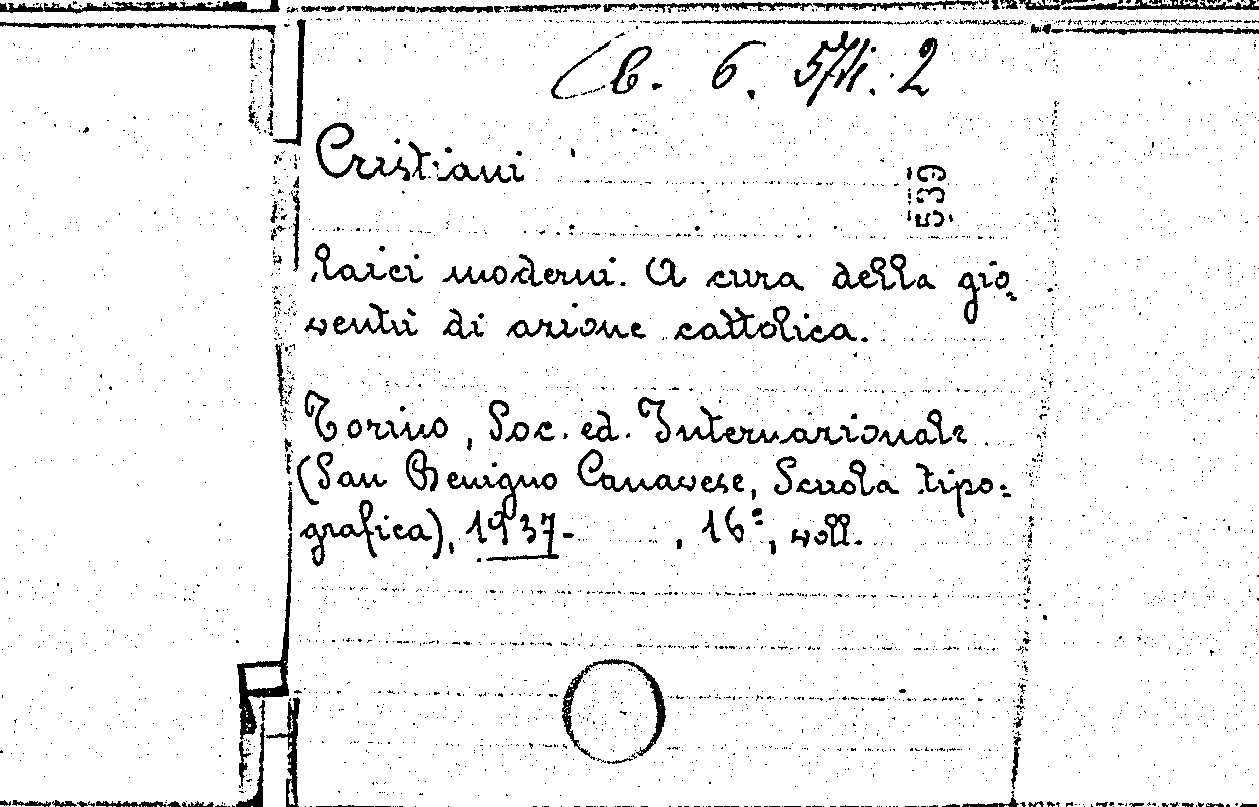 Cb. 6. 574. 2
Cristiani
539
laici moderni. A cura della gio-
ventù di azione cattolica.
Torino, Soc. ed. Internazionale
(San Benigno Canavese, Scuola tipo-
grafica), 1937- , 16°, voll.